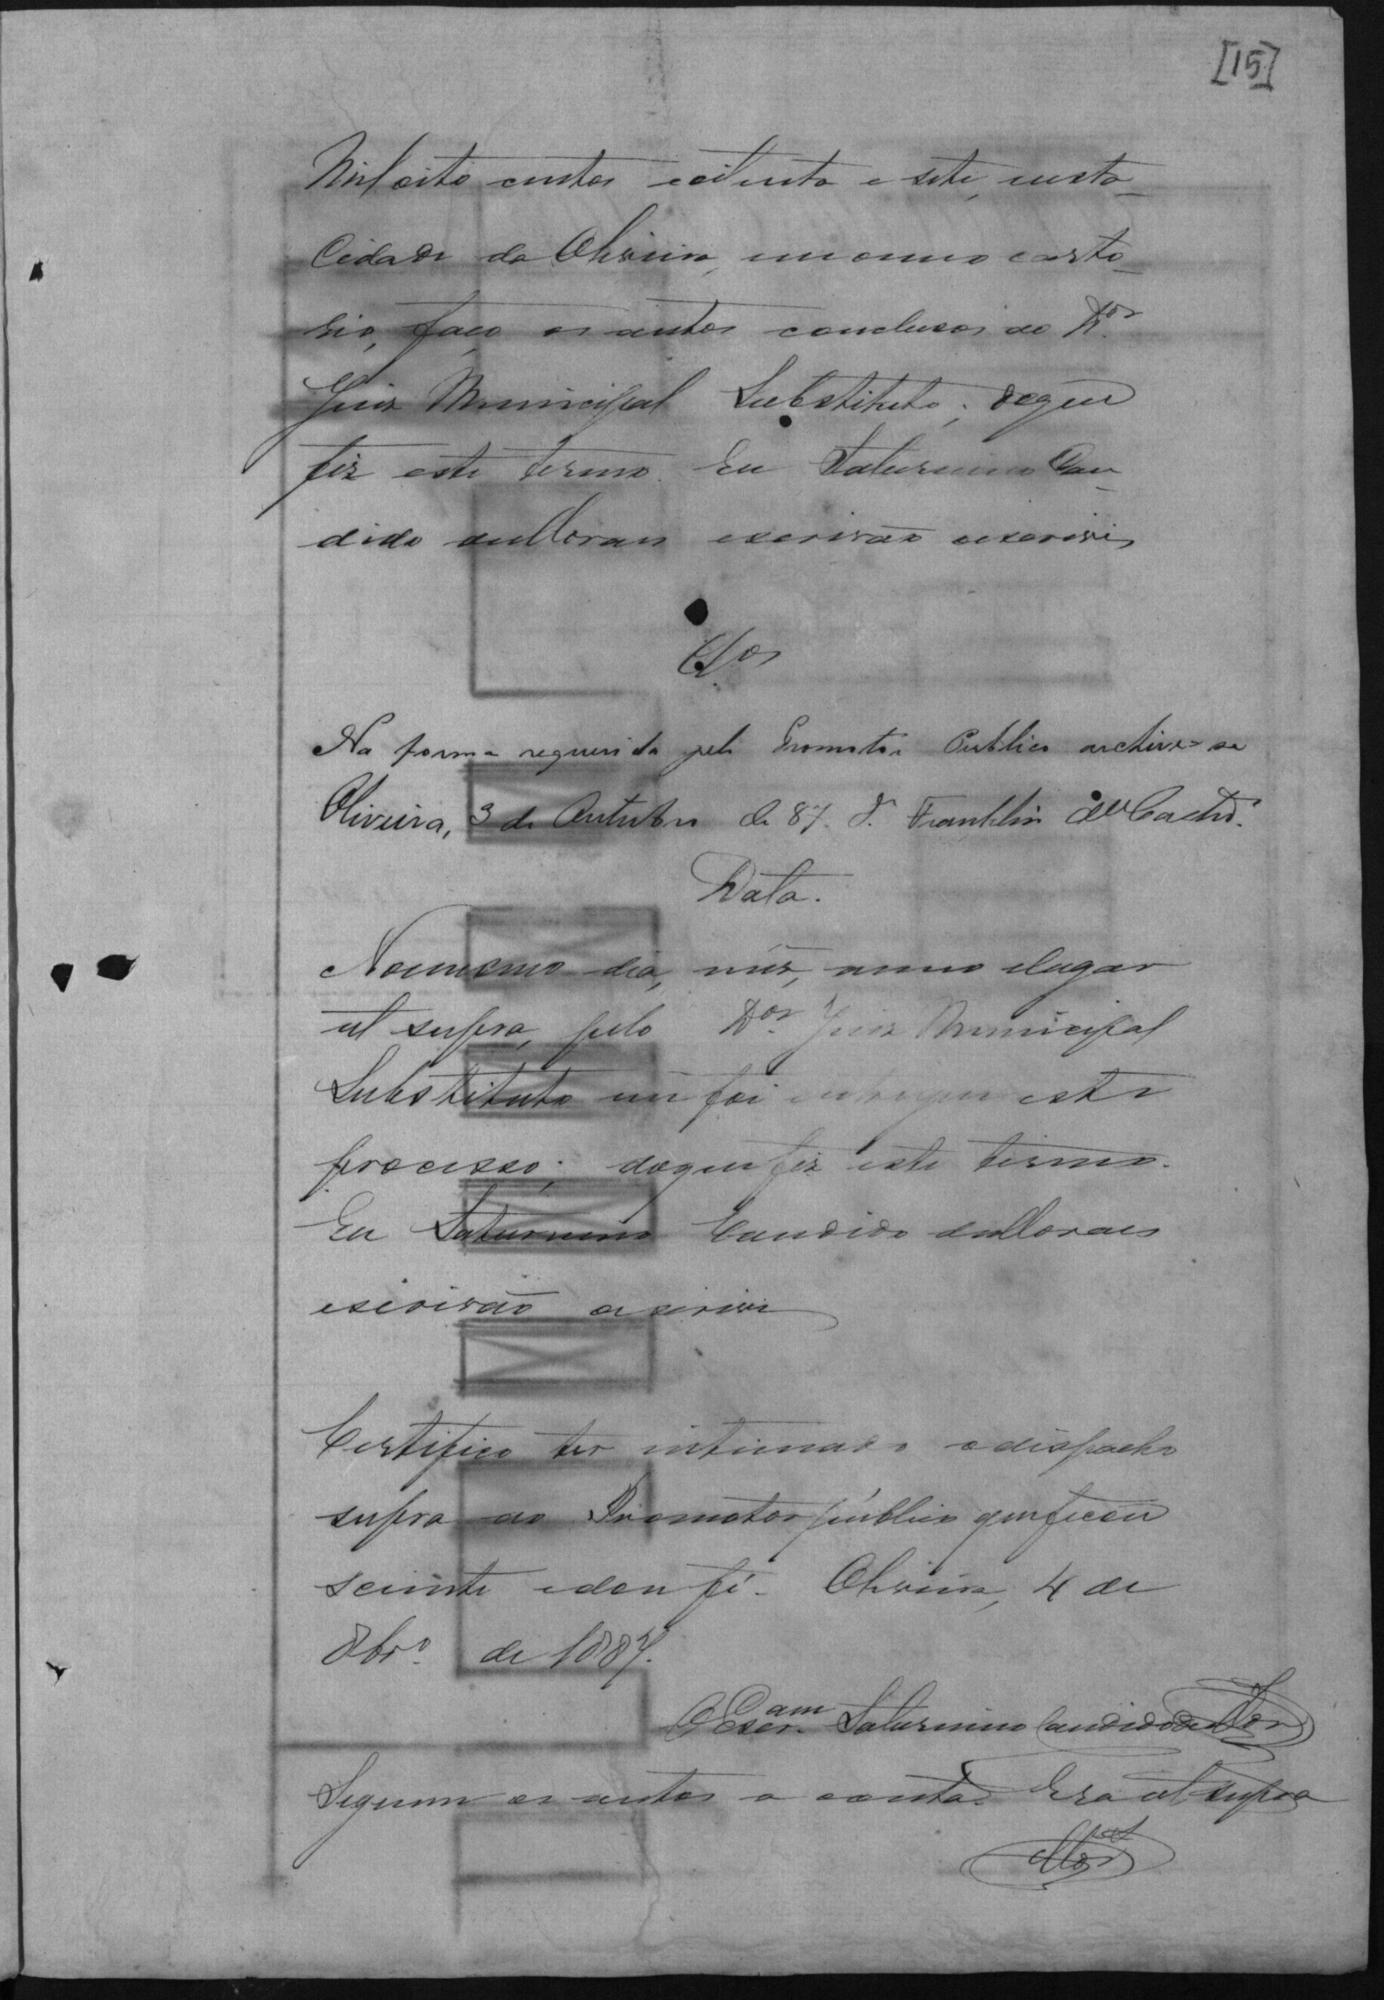 [15]
Mil oito centos e oitenta e sete, nesta
Cidade da Oliveira, em o meo carto-
rio, faço os autos conclusos ao Dor.
Juiz Municipal Substituto; do que
fiz este termo. Eu Saturnino Can-
dido de Moraes escrivão o escrevi
Clos.
Na forma requerida pelo Promotor Publico archive-se
Oliveira, 3 de Outubro de 87. F. Franklin de Castro.
Data.
No mesmo dia, mês, anno e lugar
ut supra, pelo Dor. Juiz Municipal
Substituto me foi entregue este
processo; do que fiz este termo.
Eu Saturnino Candido de Moraes
escrivão o escrivi
Certifico ter intimado o despacho
supra ao Promotor público que ficou
sciente e dou fé. Oliveira, 4 de
8bro. de 1887.
O Escram. Saturnino Candido de Mor
Seguem os autos a conta. Era ut supra
Mor